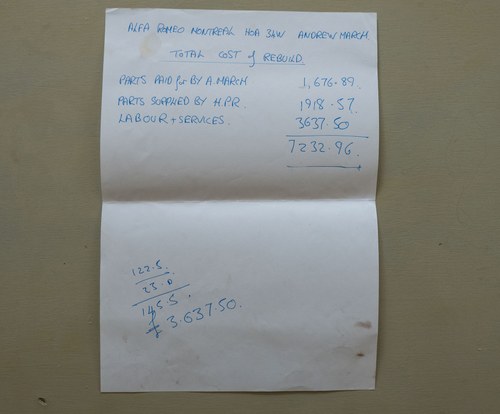 ALFA ROMEO MONTREAL HOA 34W ANDREW MARCH
TOTAL COST of REBUILD.
PARTS PAID for BY A. MARCH 1,676.89.
PARTS SUPPLIED BY H.P.R. 1918.57.
LABOUR + SERVICES. 3637.50
7232.96.
122.5.
23.0
145.5.
£ 3.637.50.